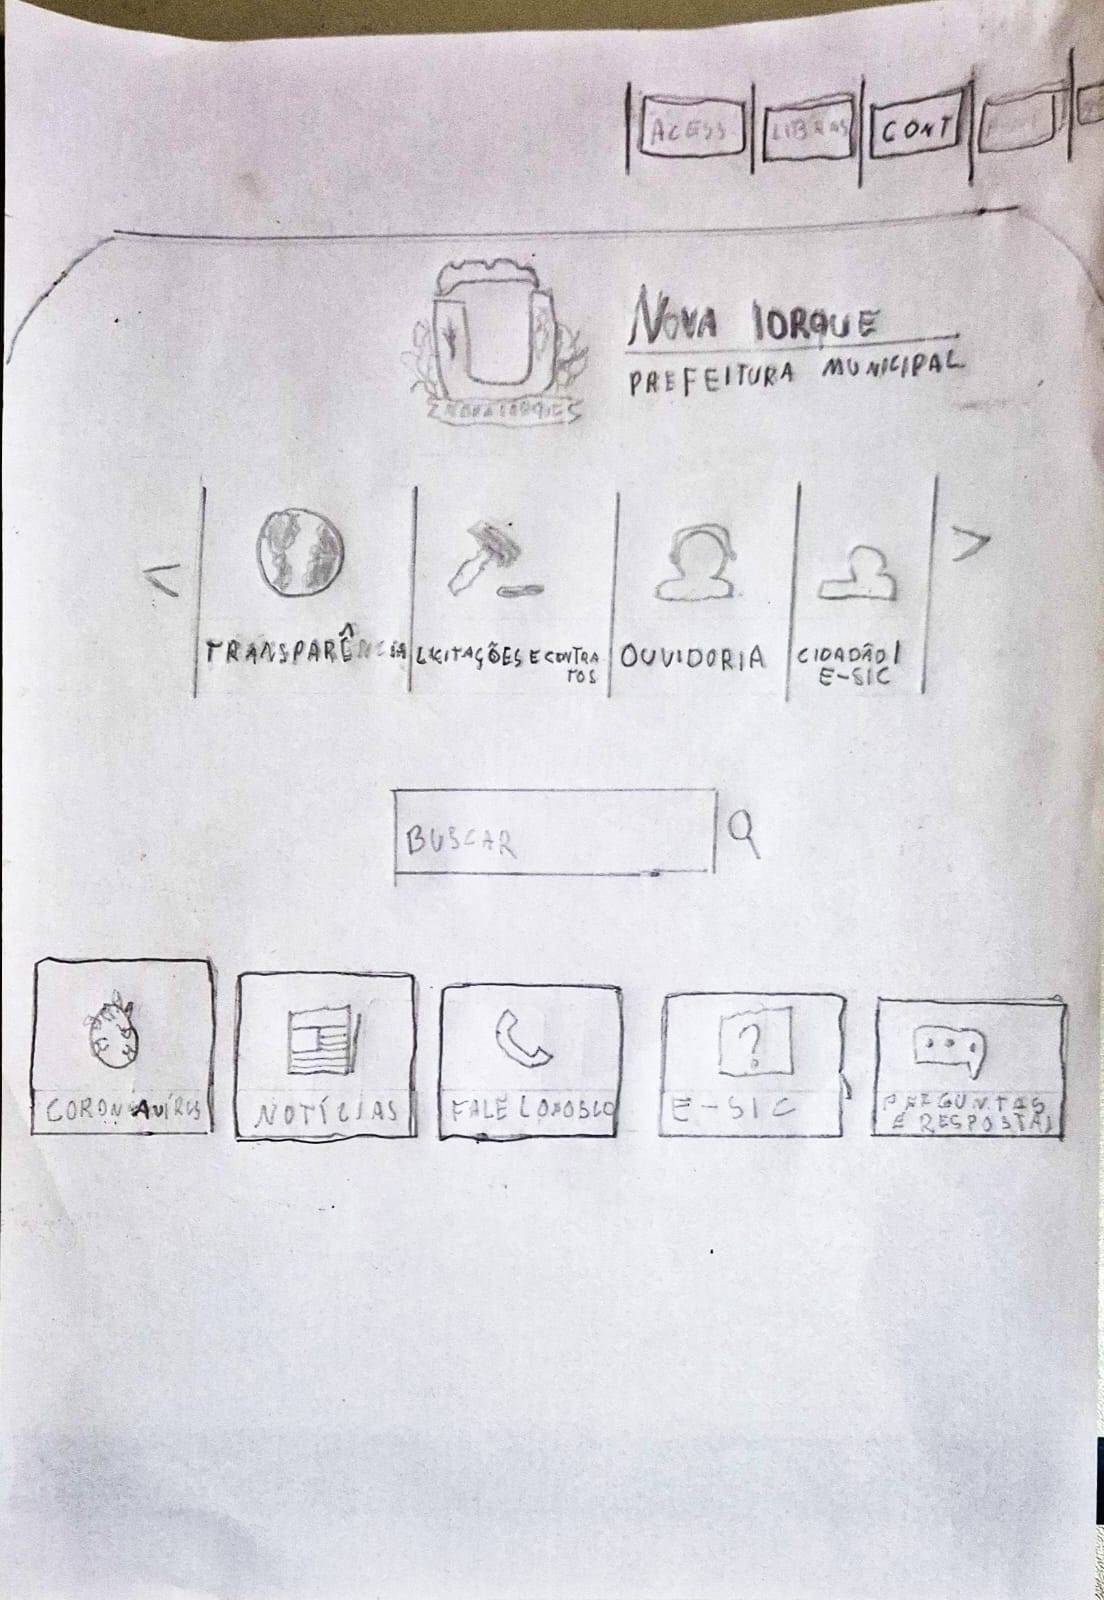 ACESS.
LIBRAS
CONT
NOVA IORQUE
PREFEITURA MUNICIPAL
<
TRANSPARÊNCIA
LICITAÇÕES E CONTRA
TOS
OUVIDORIA
CIDADÃO/
E-SIC
>
BUSCAR
CORONAVÍRUS
NOTÍCIAS
FALE CONOSCO
?
E-SIC
PERGUNTAS
E RESPOSTAS